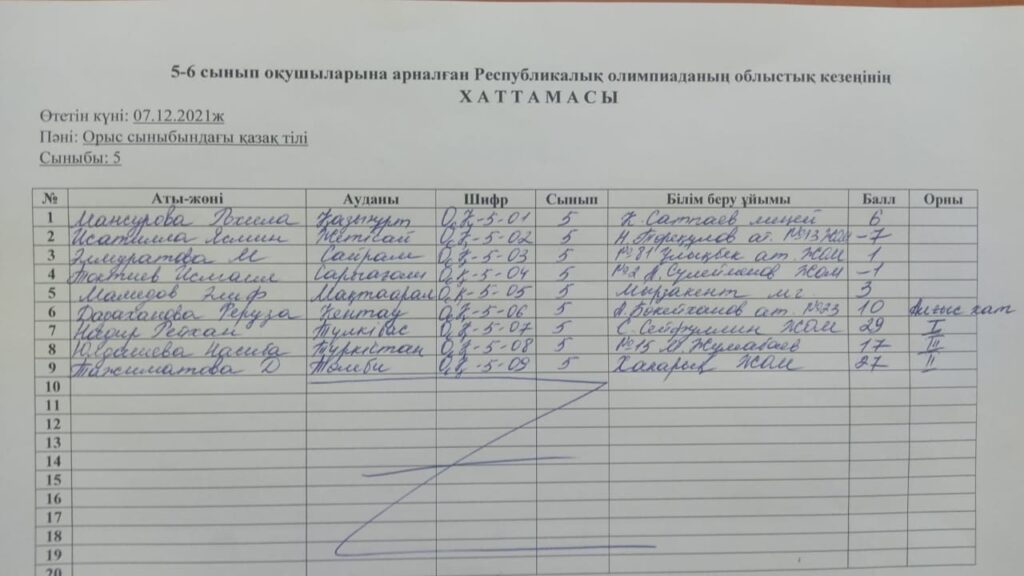 5-6 сынып оқушыларына арналған Республикалық олимпиаданың облыстық кезеңінің
Х А Т Т А М А С Ы
Өтетін күні: 07.12.2021ж
Пәні: Орыс сыныбындағы қазақ тілі
Сыныбы: 5
№ Аты-жөні Ауданы Шифр Сынып Білім беру ұйымы Балл Орны
1 Мансурова Қазығурт О,Қ-5-01 5 Қ. Сатпаев лицей 6
2 Исатилла Ясмин Жетісай О,Қ-5-02 5 ат. №13 ЖОМ -7
3 Элмуратова М Сайрам О,Қ-5-03 5 №81 Ұлықбек ат. ЖОМ 1
4 Исмаил Сарыағаш О,Қ-5-04 5 №2 А. Сулейманов ЖОМ -1
5 Мамедов Элиф Мақтаарал О,Қ-5-05 5 Мырзакент мг 3
6 Дараханова Феруза Кентау О,Қ-5-06 5 А. Бөкейханов ат. №23 10 Алғыс хат
7 Надир Рейхан Түлкібас О,Қ-5-07 5 С. Сейфуллин ЖОМ 29 I
8 Юлдашева Насиба Түркістан О,Қ-5-08 5 №15 М. Жумабаев 17 III
9 Тажиматова Д Төлеби О,Қ-5-09 5 ЖОМ 27 II
10
11
12
13
14
15
16
17
18
19
20